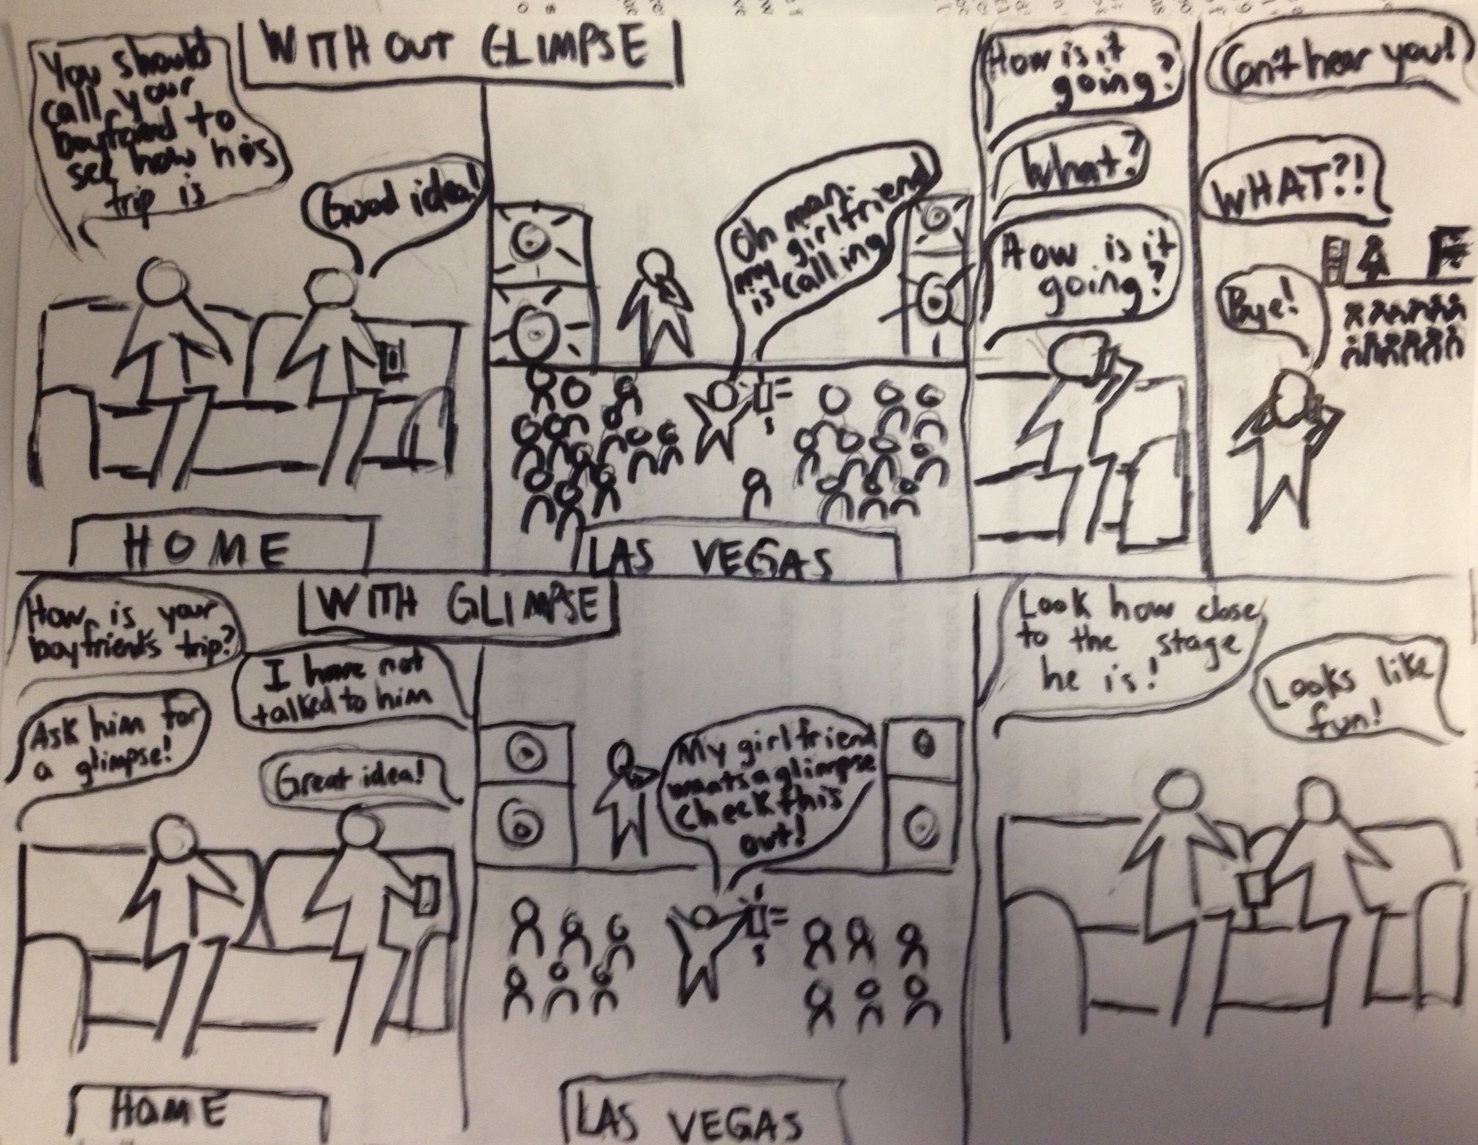 WITHOUT GLIMPSE
You should
call your
boyfriend to
see how his
trip is
Good idea!
HOME
Oh man
my girlfriend
is calling
LAS VEGAS
How is it
going?
What?
How is it
going?
Can't hear you!
WHAT?!
Bye!
WITH GLIMPSE
How is your
boyfriend's trip?
I have not
talked to him
Ask him for
a glimpse!
Great idea!
HOME
My girlfriend
wants a glimpse
check this
out!
LAS VEGAS
Look how close
to the stage
he is!
Looks like
fun!